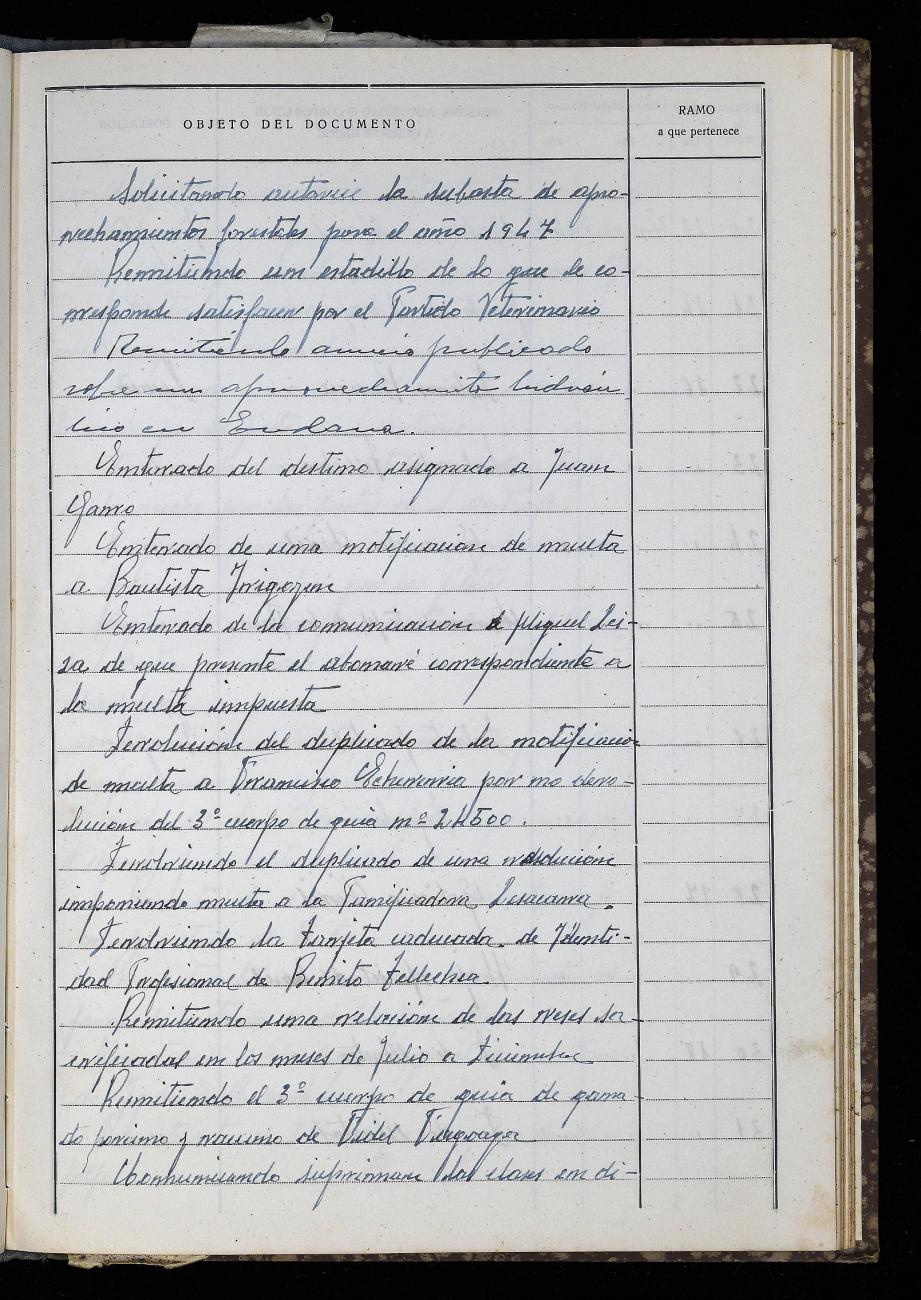 OBJETO DEL DOCUMENTO
RAMO
a que pertenece
Solicitando autorice la subasta de apro-
vechamientos forestales para el año 1947
Remitiendo un estadillo de lo que le co-
rresponde satisfacer por el Partido Veterinario
Remitiendo anuncio publicado
sobre un aprovechamiento hidráu
lico en Endara.
Enterado del destino asignado a Juan
Garro
Enterado de una notificacion de multa
a Bautista Irigoyen
Enterado de la comunicacion a Miguel Lei-
za de que presente el abonaré correspondiente a
la multa impuesta
Devolución del duplicado de la notificacion
de multa a Francisco Echeverria por no devo-
lución del 3º cuerpo de guia nº 24500.
Devolviendo el duplicado de una resolución
imponiendo multa a la Panificadora Lesacarra.
Devolviendo la tarjeta caducada de Identi-
dad Profesional de Benito Tellechea
Remitiendo una relación de las reses sa-
crificadas en los meses de Julio a Diciembre
Remitiendo el 3º cuerpo de guia de gana-
do porcino y vacuno de Fidel
Comunicando suprimen las clases en di-